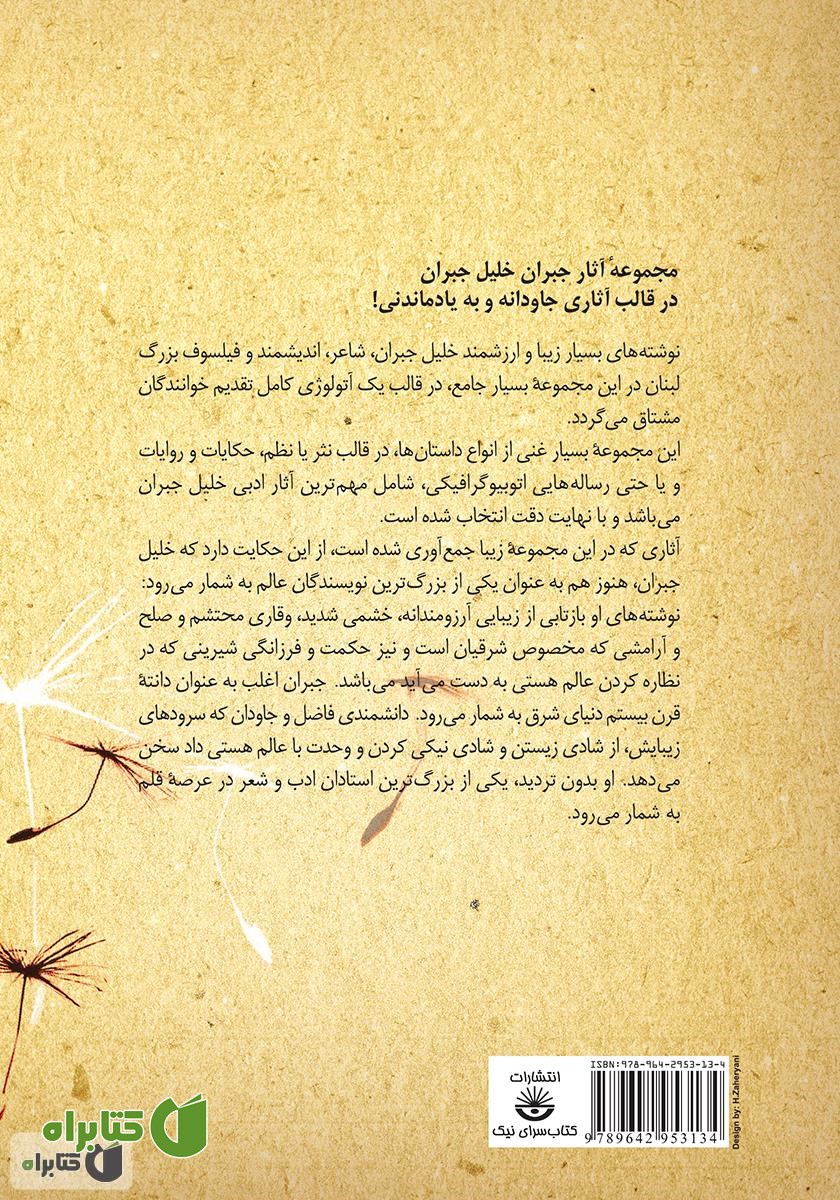 مجموعهٔ آثار جبران خلیل جبران
در قالب آثاری جاودانه و به یادماندنی!
نوشته‌های بسیار زیبا و ارزشمند خلیل جبران، شاعر، اندیشمند و فیلسوف بزرگ
لبنان در این مجموعهٔ بسیار جامع، در قالب یک آتولوژی کامل تقدیم خوانندگان
مشتاق می‌گردد.
این مجموعهٔ بسیار غنی از انواع داستان‌ها، در قالب نثر یا نظم، حکایات و روایات
و یا حتی رساله‌هایی اتوبیوگرافیکی، شامل مهم‌ترین آثار ادبی خلیل جبران
می‌باشد و با نهایت دقت انتخاب شده است.
آثاری که در این مجموعهٔ زیبا جمع‌آوری شده است، از این حکایت دارد که خلیل
جبران، هنوز هم به عنوان یکی از بزرگ‌ترین نویسندگان عالم به شمار می‌رود:
نوشته‌های او بازتابی از زیبایی آرزومندانه، خشمی شدید، وقاری محتشم و صلح
و آرامشی که مخصوص شرقیان است و نیز حکمت و فرزانگی شیرینی که در
نظاره کردن عالم هستی به دست می‌آید می‌باشد. جبران اغلب به عنوان دانتهٔ
قرن بیستم دنیای شرق به شمار می‌رود. دانشمندی فاضل و جاودان که سرودهای
زیبایش، از شادی زیستن و شادی نیکی کردن و وحدت با عالم هستی داد سخن
می‌دهد. او بدون تردید، یکی از بزرگ‌ترین استادان ادب و شعر در عرصهٔ قلم
به شمار می‌رود.
ISBN:978-964-2953-13-4
انتشارات
کتاب‌سرای نیک
9 789642 953134
Design by: H.Zaheryani
کتابراه
کتابراه